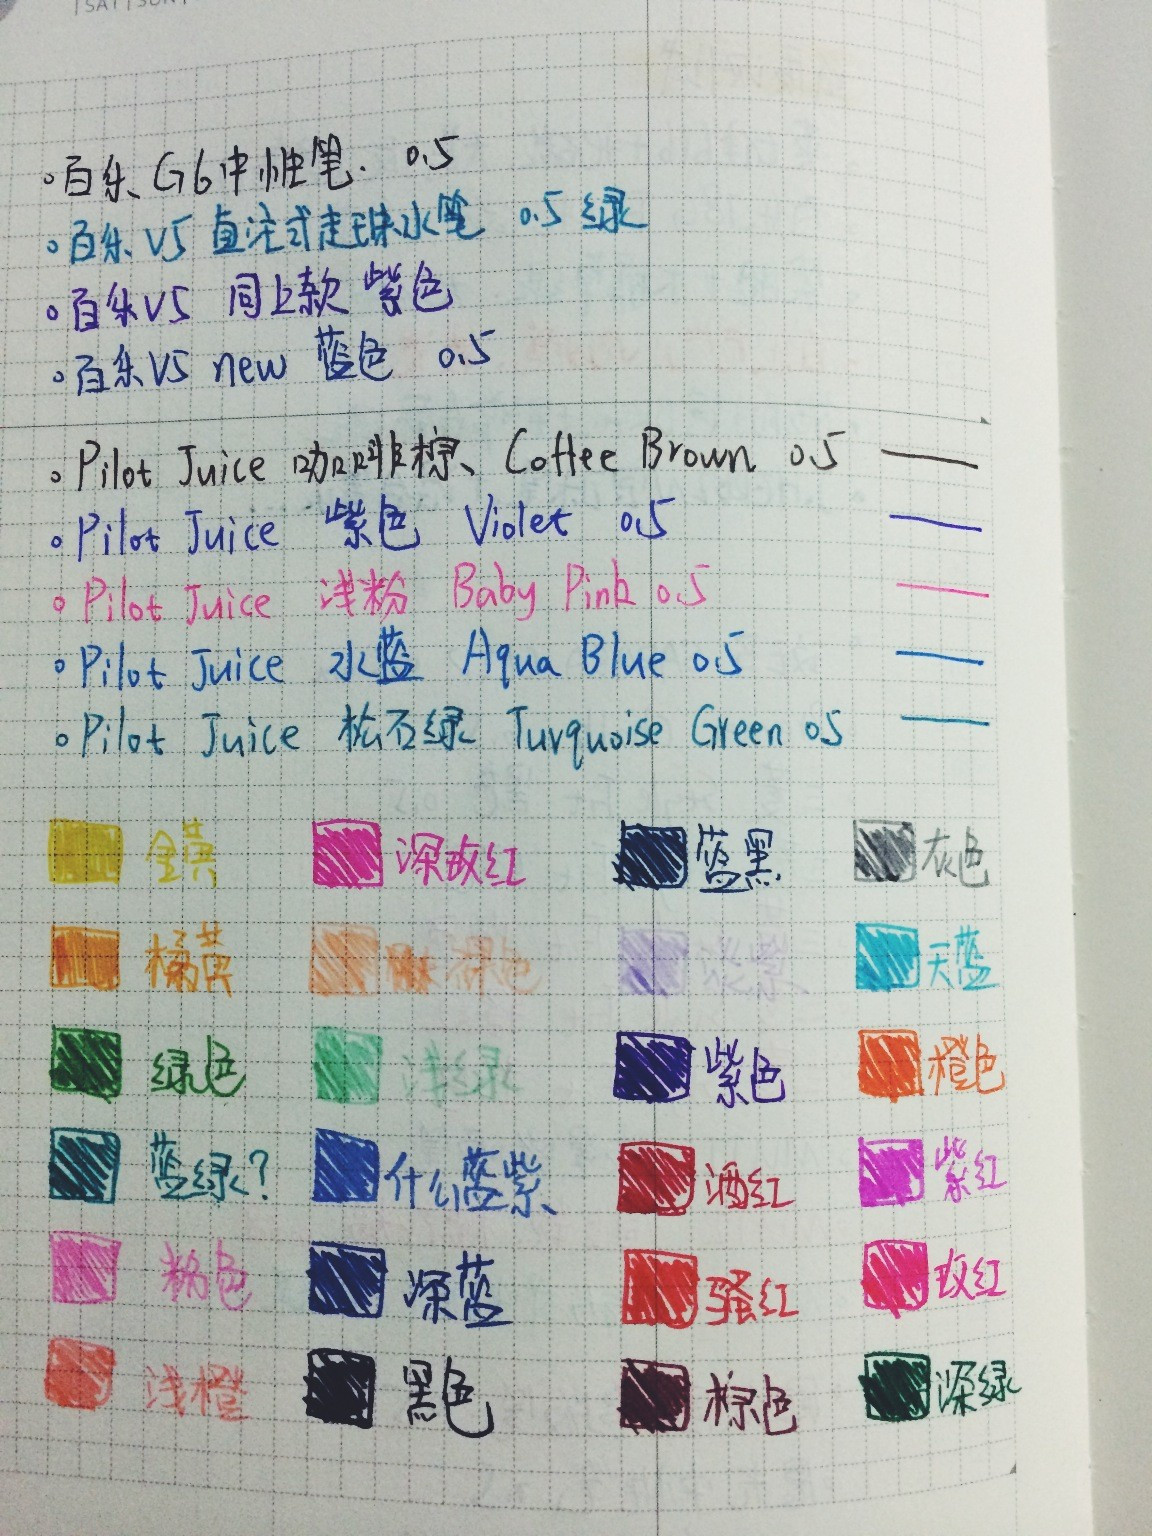 |SAT|SUN|
。百乐、G6中性笔. 0.5
。百乐V5 直注式走珠水笔 0.5 绿
。百乐V5 同上款 紫色
。百乐V5 new 蓝色 0.5
。Pilot Juice 咖啡棕、Coffee Brown 0.5
。Pilot Juice 紫色 Violet 0.5
。Pilot Juice 浅粉 Baby Pink 0.5
。Pilot Juice 水蓝 Aqua Blue 0.5
。Pilot Juice 松石绿 Turquoise Green 0.5
金黄 深玫红 蓝黑 灰色
橘黄 裸色 浅紫 天蓝
绿色 浅绿 紫色 橙色
蓝绿? 什么蓝紫、 酒红 紫红
粉色 深蓝 骚红 玫红
浅橙 黑色 棕色 深绿